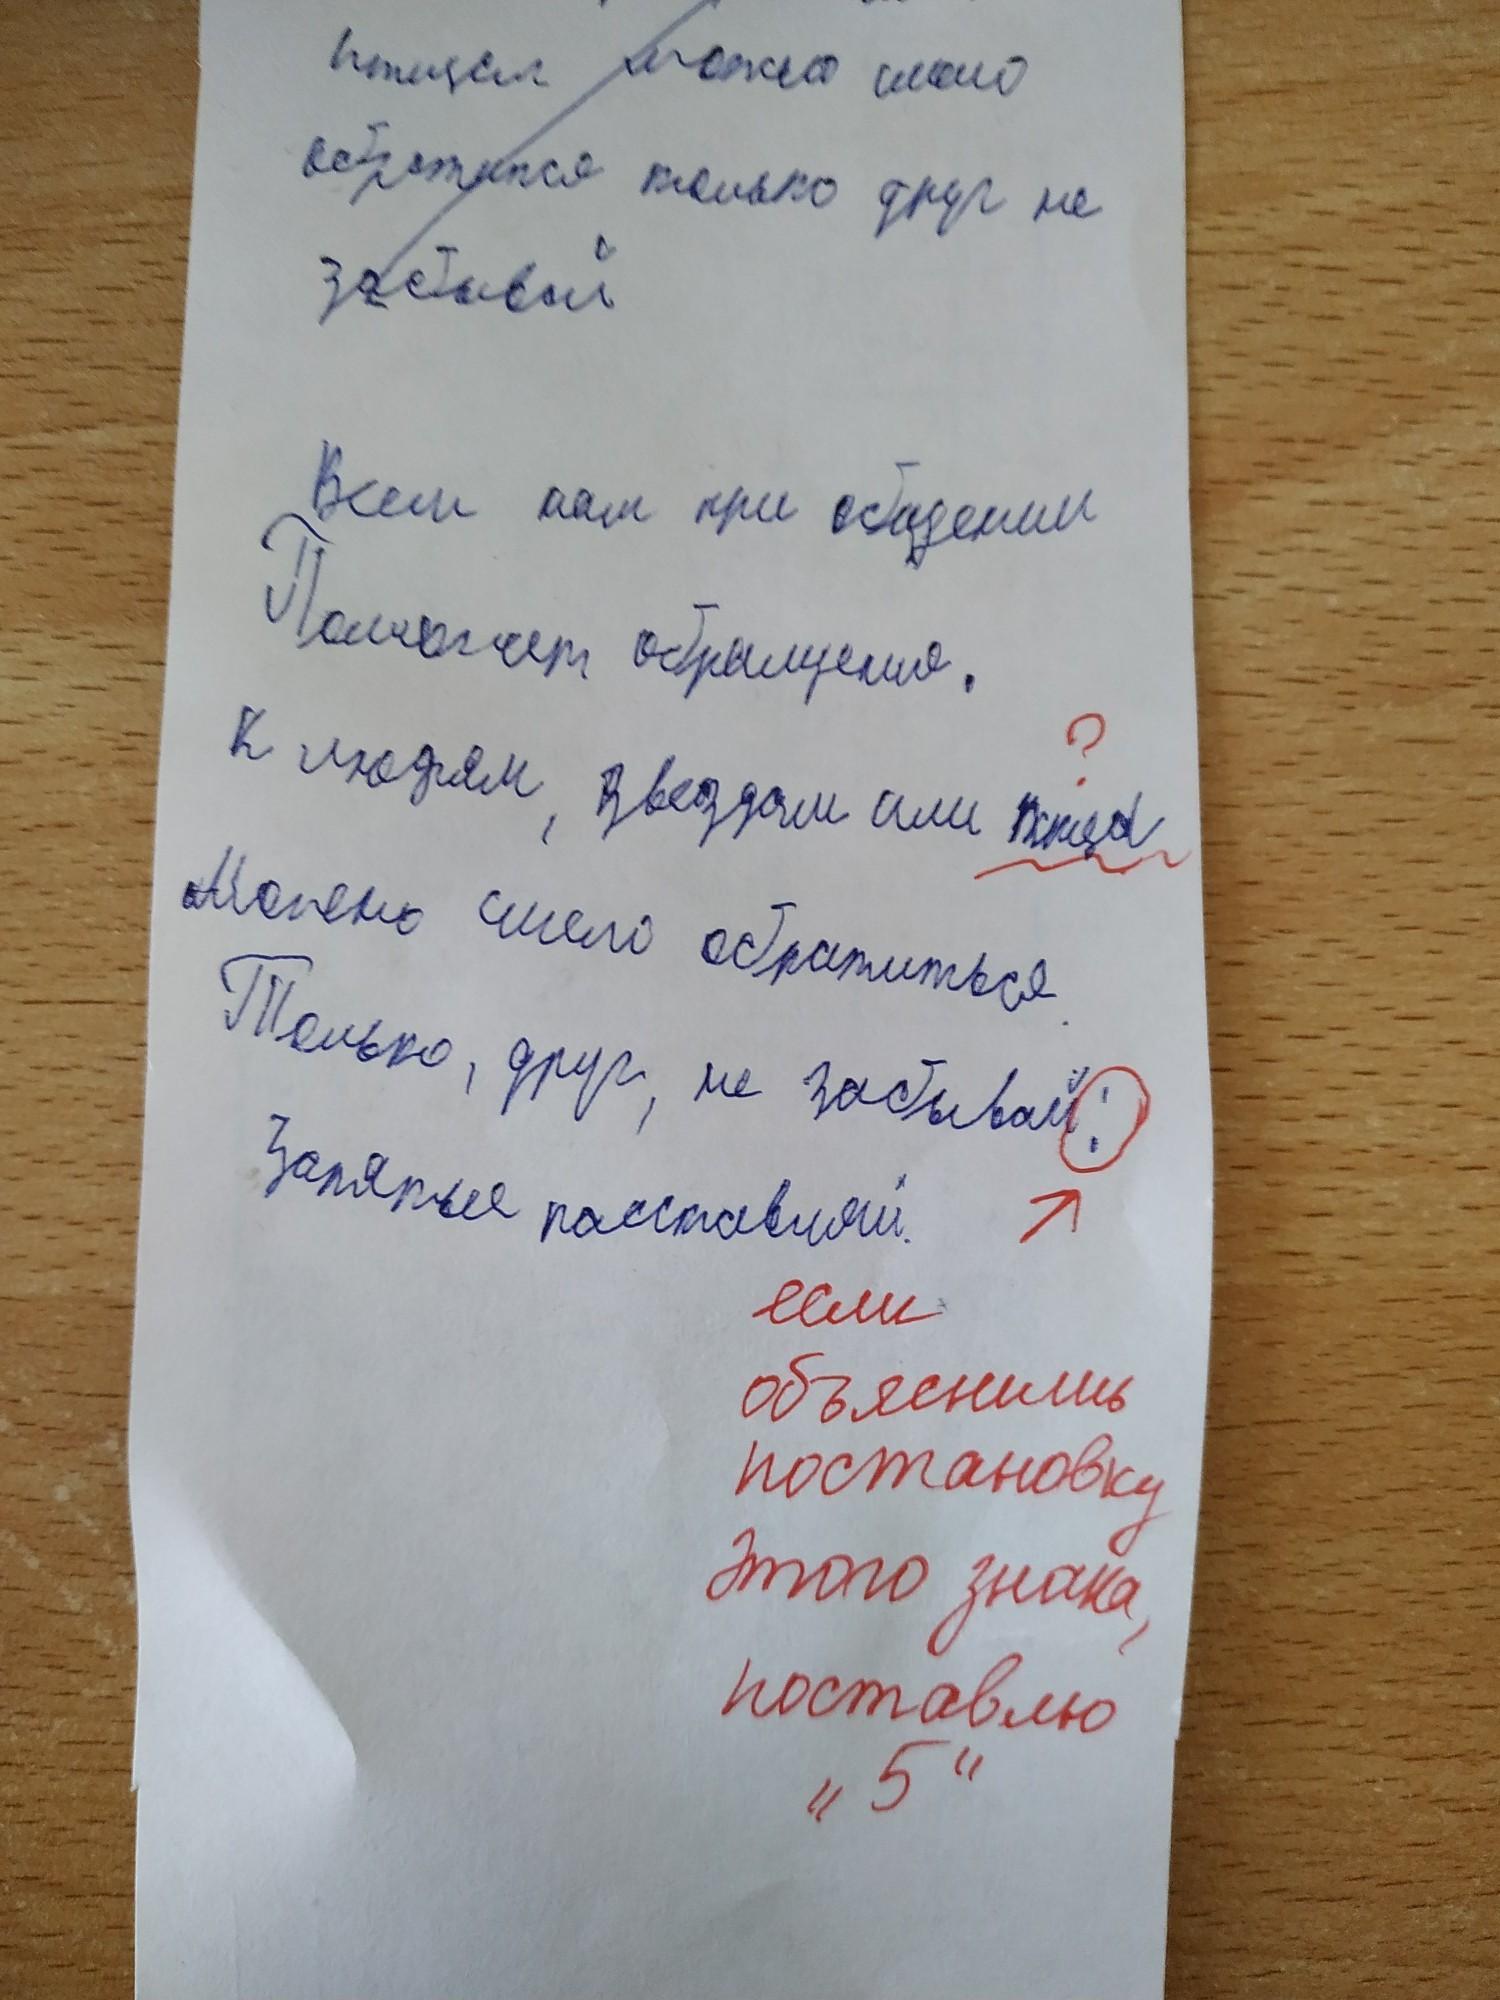 птицам можно смело
обратится только друг не
забывай
Всем нам при общении
Поможет обращения.
?
К людям, звездам или птица
Можно смело обратиться.
Только, друг, не забывай:
Запятые расставляй.
если
объяснишь
постановку
этого знака,
поставлю
"5"